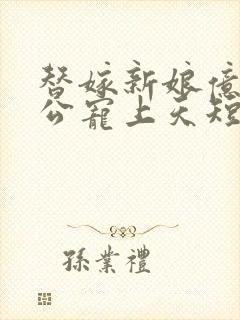 替嫁新娘億
公寵上天短
孫業禮